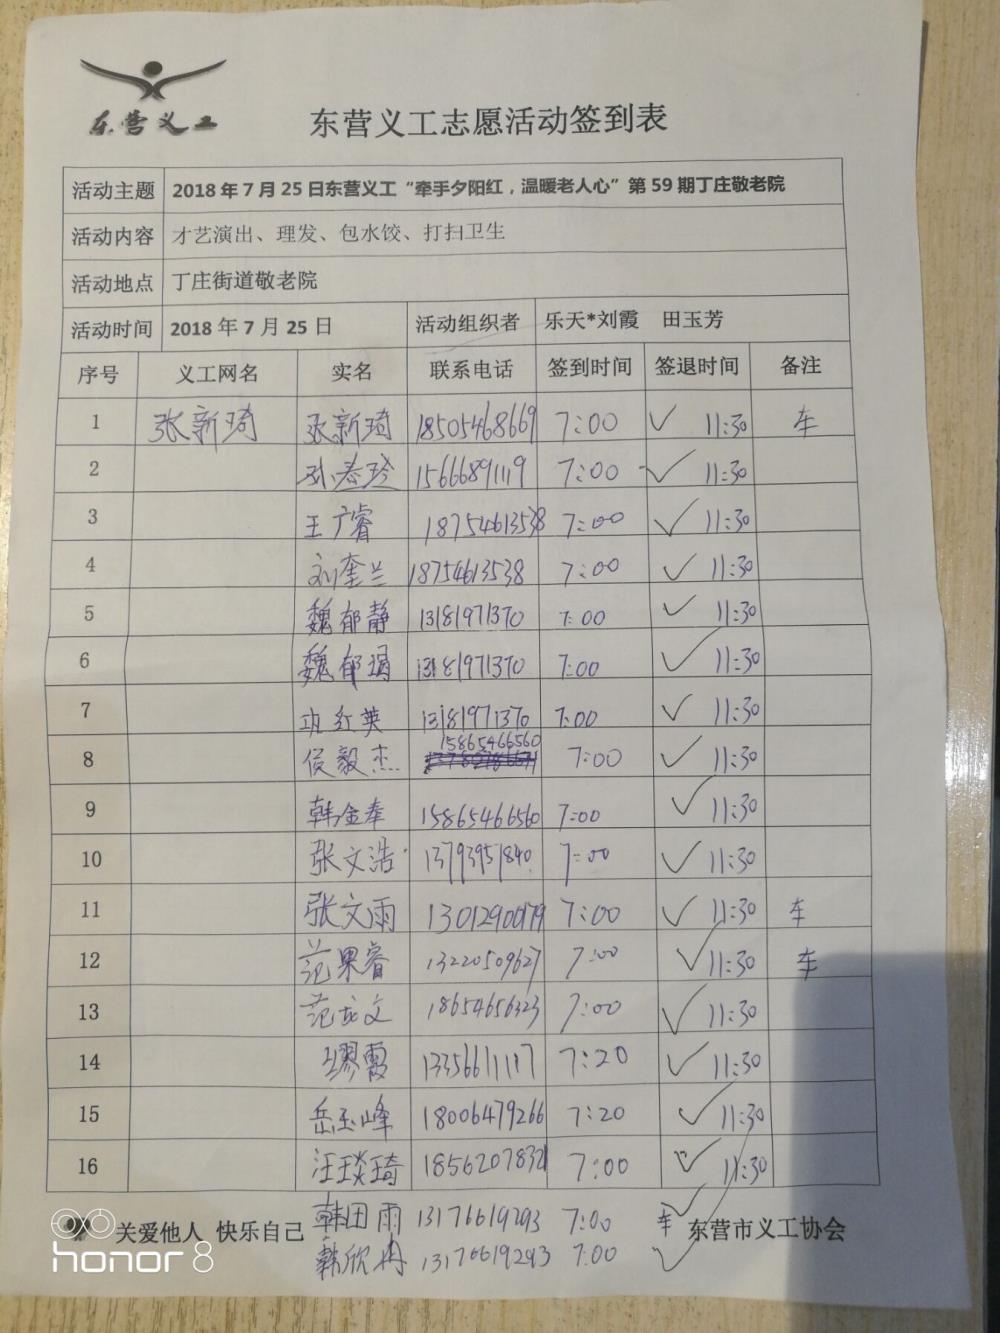 东营义工
东营义工志愿活动签到表
活动主题 2018年7月25日东营义工“牵手夕阳红，温暖老人心”第59期丁庄敬老院
活动内容 才艺演出、理发、包水饺、打扫卫生
活动地点 丁庄街道敬老院
活动时间 2018年7月25日 活动组织者 乐天*刘霞 田玉芳
序号 义工网名 实名 联系电话 签到时间 签退时间 备注
1 张新琦 张新琦 18505468669 7:00 ✓ 11:30 车
2 15666891119 7:00 ✓ 11:30
3 王广睿 18754613538 7:00 ✓ 11:30
4 刘奎兰 18754613538 7:00 ✓ 11:30
5 魏郁静 13181971370 7:00 ✓ 11:30
6 魏郁娟 13181971370 7:00 ✓ 11:30
7 13181971370 7:00 ✓ 11:30
8 侯毅杰 15865466560 7:00 ✓ 11:30
9 韩金奉 15865466560 7:00 ✓ 11:30
10 张文浩 13793951840 7:00 ✓ 11:30
11 张文雨 13012900179 7:00 ✓ 11:30 车
12 范果睿 13220509627 7:00 ✓ 11:30 车
13 范龙文 18654656323 7:00 ✓ 11:30
14 13356611117 7:20 ✓ 11:30
15 岳玉峰 18006479266 7:20 ✓ 11:30
16 汪琰琦 18562078321 7:00 ✓ 11:30
关爱他人 快乐自己 韩田雨 13176619293 7:00 车 ✓ 东营市义工协会
韩欣冉 13176619293 7:00 ✓
honor 8